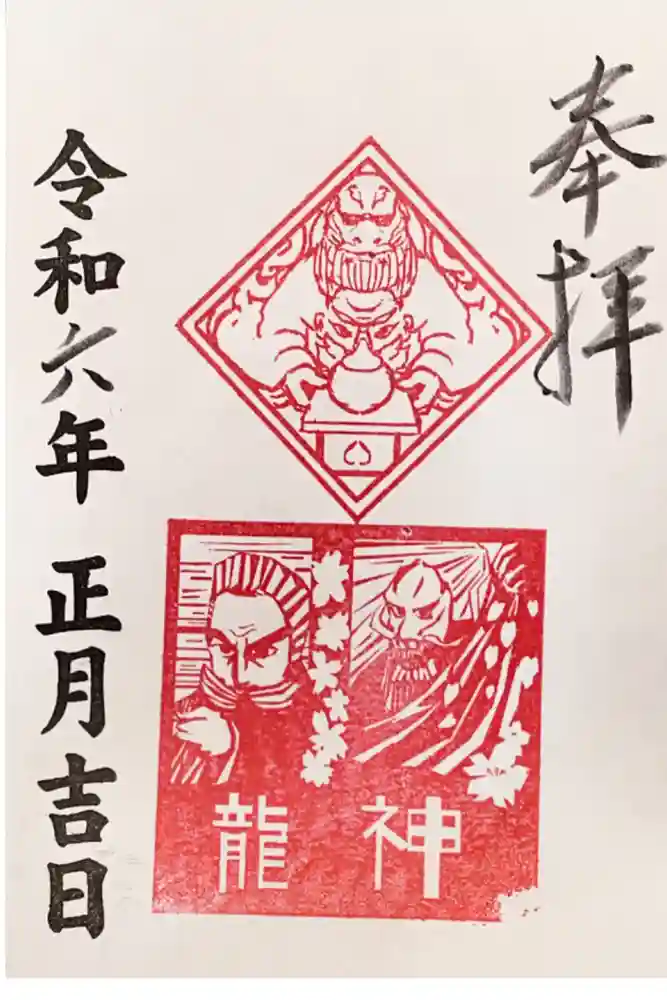 奉拝
龍神
令和六年 正月吉日